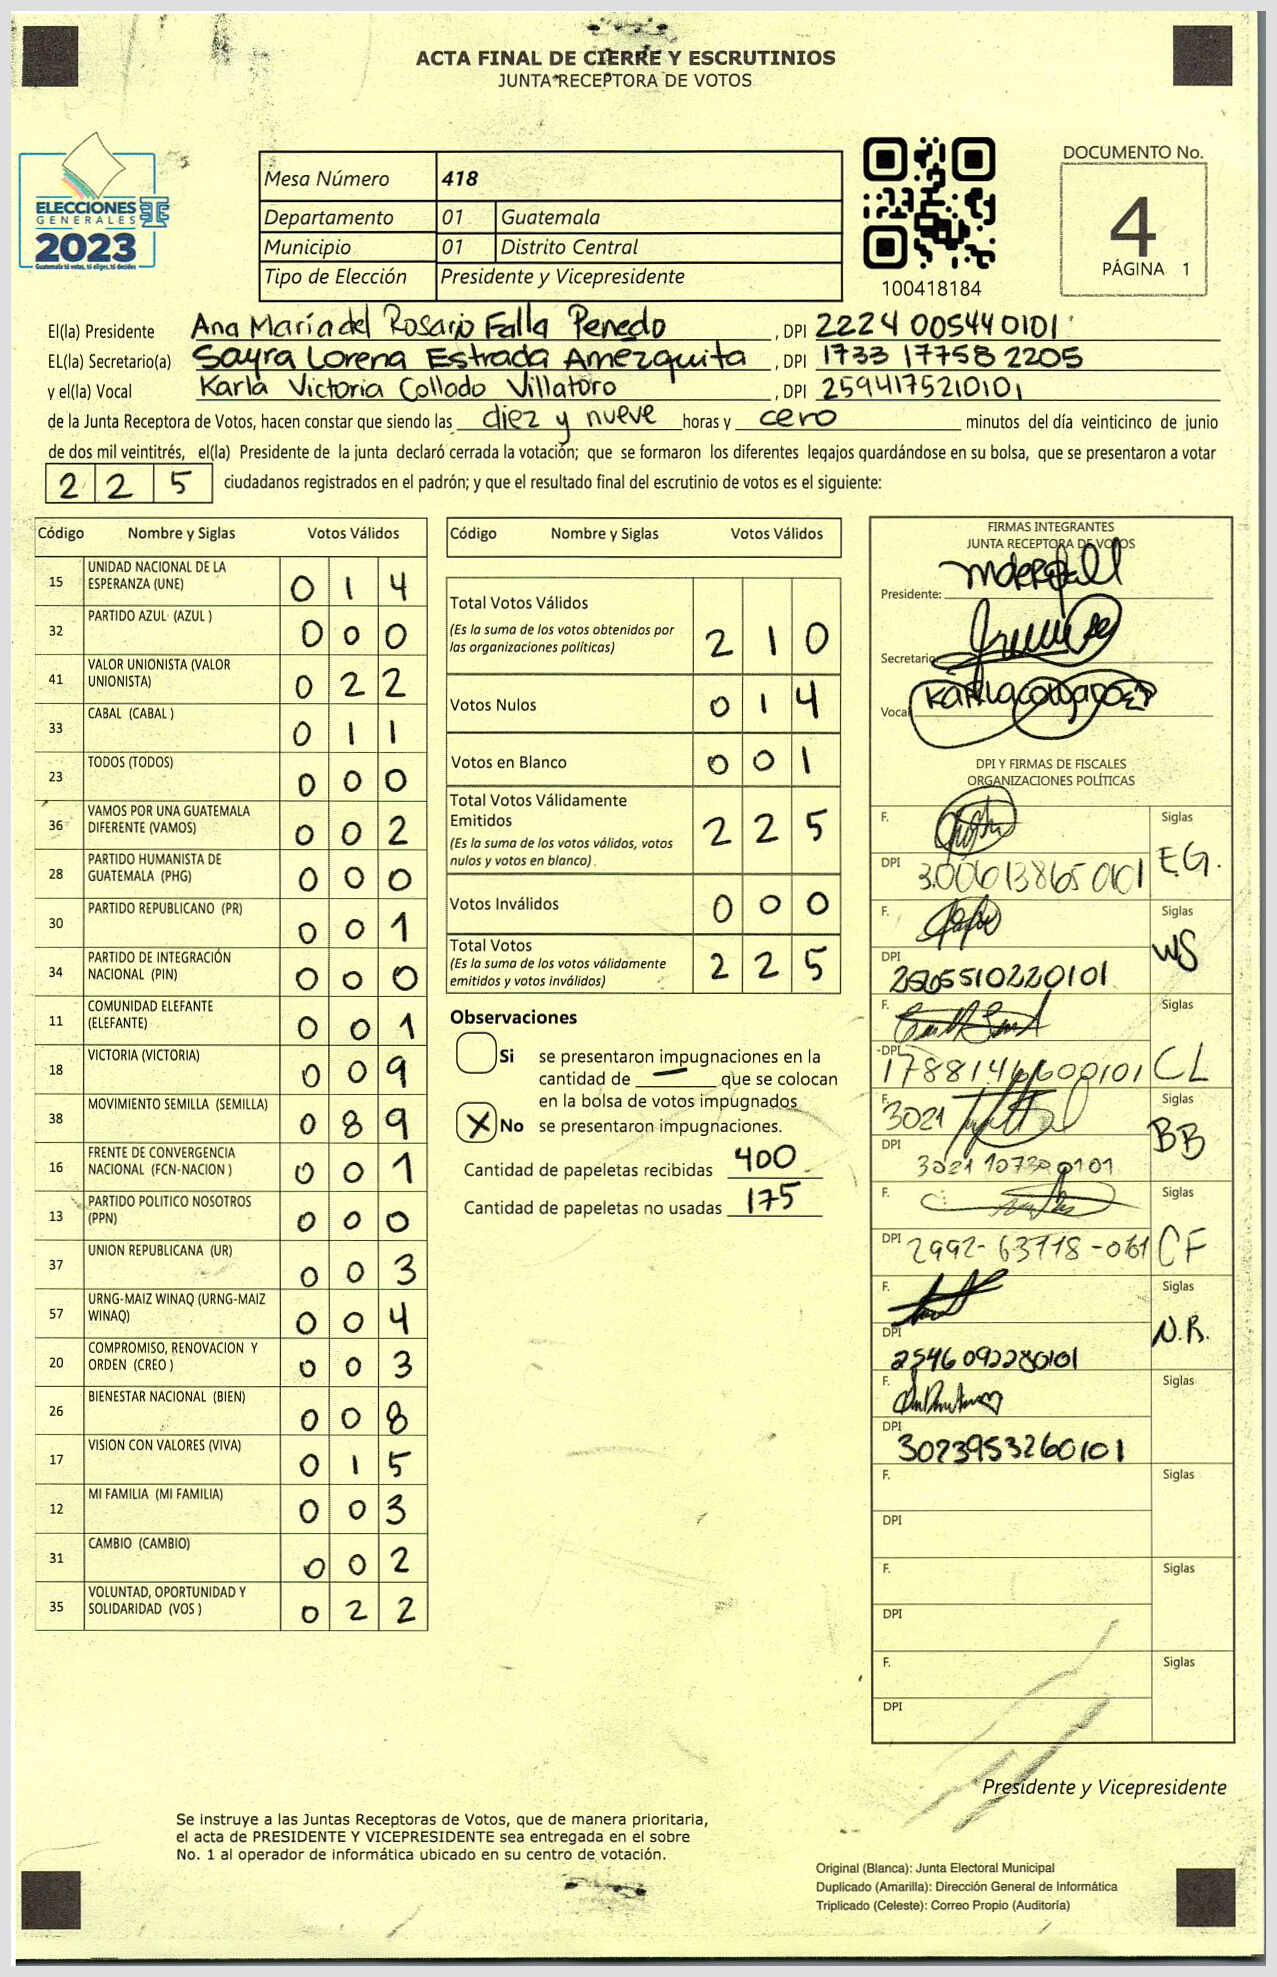 ACTA FINAL DE CIERRE Y ESCRUTINIOS
JUNTA RECEPTORA DE VOTOS
ELECCIONES
GENERALES
2023
Guatemala tú votas, tú eliges, tú decides
Mesa Número 418
Departamento 01 Guatemala
Municipio 01 Distrito Central
Tipo de Elección Presidente y Vicepresidente
100418184
DOCUMENTO No.
4
PÁGINA 1
El(la) Presidente Ana María del Rosario Falla Penedo, DPI 2224 00544 0101
EL(la) Secretario(a) Sayra Lorena Estrada Amézquita, DPI 1733 17758 2205
y el(la) Vocal Karla Victoria Collado Villatoro, DPI 2594175210101
de la Junta Receptora de Votos, hacen constar que siendo las diez y nueve horas y cero minutos del día veinticinco de junio
de dos mil veintitrés, el(la) Presidente de la junta declaró cerrada la votación; que se formaron los diferentes legajos guardándose en su bolsa, que se presentaron a votar
2 2 5 ciudadanos registrados en el padrón; y que el resultado final del escrutinio de votos es el siguiente:
Código Nombre y Siglas Votos Válidos
15 UNIDAD NACIONAL DE LA ESPERANZA (UNE) 0 1 4
32 PARTIDO AZUL (AZUL ) 0 0 0
41 VALOR UNIONISTA (VALOR UNIONISTA) 0 2 2
33 CABAL (CABAL ) 0 1 1
23 TODOS (TODOS) 0 0 0
36 VAMOS POR UNA GUATEMALA DIFERENTE (VAMOS) 0 0 2
28 PARTIDO HUMANISTA DE GUATEMALA (PHG) 0 0 0
30 PARTIDO REPUBLICANO (PR) 0 0 1
34 PARTIDO DE INTEGRACIÓN NACIONAL (PIN) 0 0 0
11 COMUNIDAD ELEFANTE (ELEFANTE) 0 0 1
18 VICTORIA (VICTORIA) 0 0 9
38 MOVIMIENTO SEMILLA (SEMILLA) 0 8 9
16 FRENTE DE CONVERGENCIA NACIONAL (FCN-NACION ) 0 0 1
13 PARTIDO POLITICO NOSOTROS (PPN) 0 0 0
37 UNION REPUBLICANA (UR) 0 0 3
57 URNG-MAIZ WINAQ (URNG-MAIZ WINAQ) 0 0 4
20 COMPROMISO, RENOVACION Y ORDEN (CREO ) 0 0 3
26 BIENESTAR NACIONAL (BIEN) 0 0 8
17 VISION CON VALORES (VIVA) 0 1 5
12 MI FAMILIA (MI FAMILIA) 0 0 3
31 CAMBIO (CAMBIO) 0 0 2
35 VOLUNTAD, OPORTUNIDAD Y SOLIDARIDAD (VOS ) 0 2 2
Código Nombre y Siglas Votos Válidos
Total Votos Válidos 2 1 0
(Es la suma de los votos obtenidos por
las organizaciones políticas)
Votos Nulos 0 1 4
Votos en Blanco 0 0 1
Total Votos Válidamente
Emitidos 2 2 5
(Es la suma de los votos válidos, votos
nulos y votos en blanco)
Votos Inválidos 0 0 0
Total Votos 2 2 5
(Es la suma de los votos válidamente
emitidos y votos inválidos)
Observaciones
Si se presentaron impugnaciones en la
cantidad de — que se colocan
en la bolsa de votos impugnados
X No se presentaron impugnaciones.
Cantidad de papeletas recibidas 400
Cantidad de papeletas no usadas 175
FIRMAS INTEGRANTES
JUNTA RECEPTORA DE VOTOS
Presidente:
Secretario:
Vocal
DPI Y FIRMAS DE FISCALES
ORGANIZACIONES POLÍTICAS
F. Siglas
DPI E.G.
F. Siglas
DPI 2505510220101 WS
F. Siglas
DPI 1788146600101 CL
F. 3021 Siglas
DPI 3021 10730 0101 BB
F. Siglas
DPI 2992- 63778 -0101 CF
F. Siglas
DPI 2546 092280101 N.R.
F. Siglas
DPI 3023953260101
F. Siglas
DPI
F. Siglas
DPI
F. Siglas
DPI
Presidente y Vicepresidente
Se instruye a las Juntas Receptoras de Votos, que de manera prioritaria,
el acta de PRESIDENTE Y VICEPRESIDENTE sea entregada en el sobre
No. 1 al operador de informática ubicado en su centro de votación.
Original (Blanca): Junta Electoral Municipal
Duplicado (Amarilla): Dirección General de Informática
Triplicado (Celeste): Correo Propio (Auditoría)